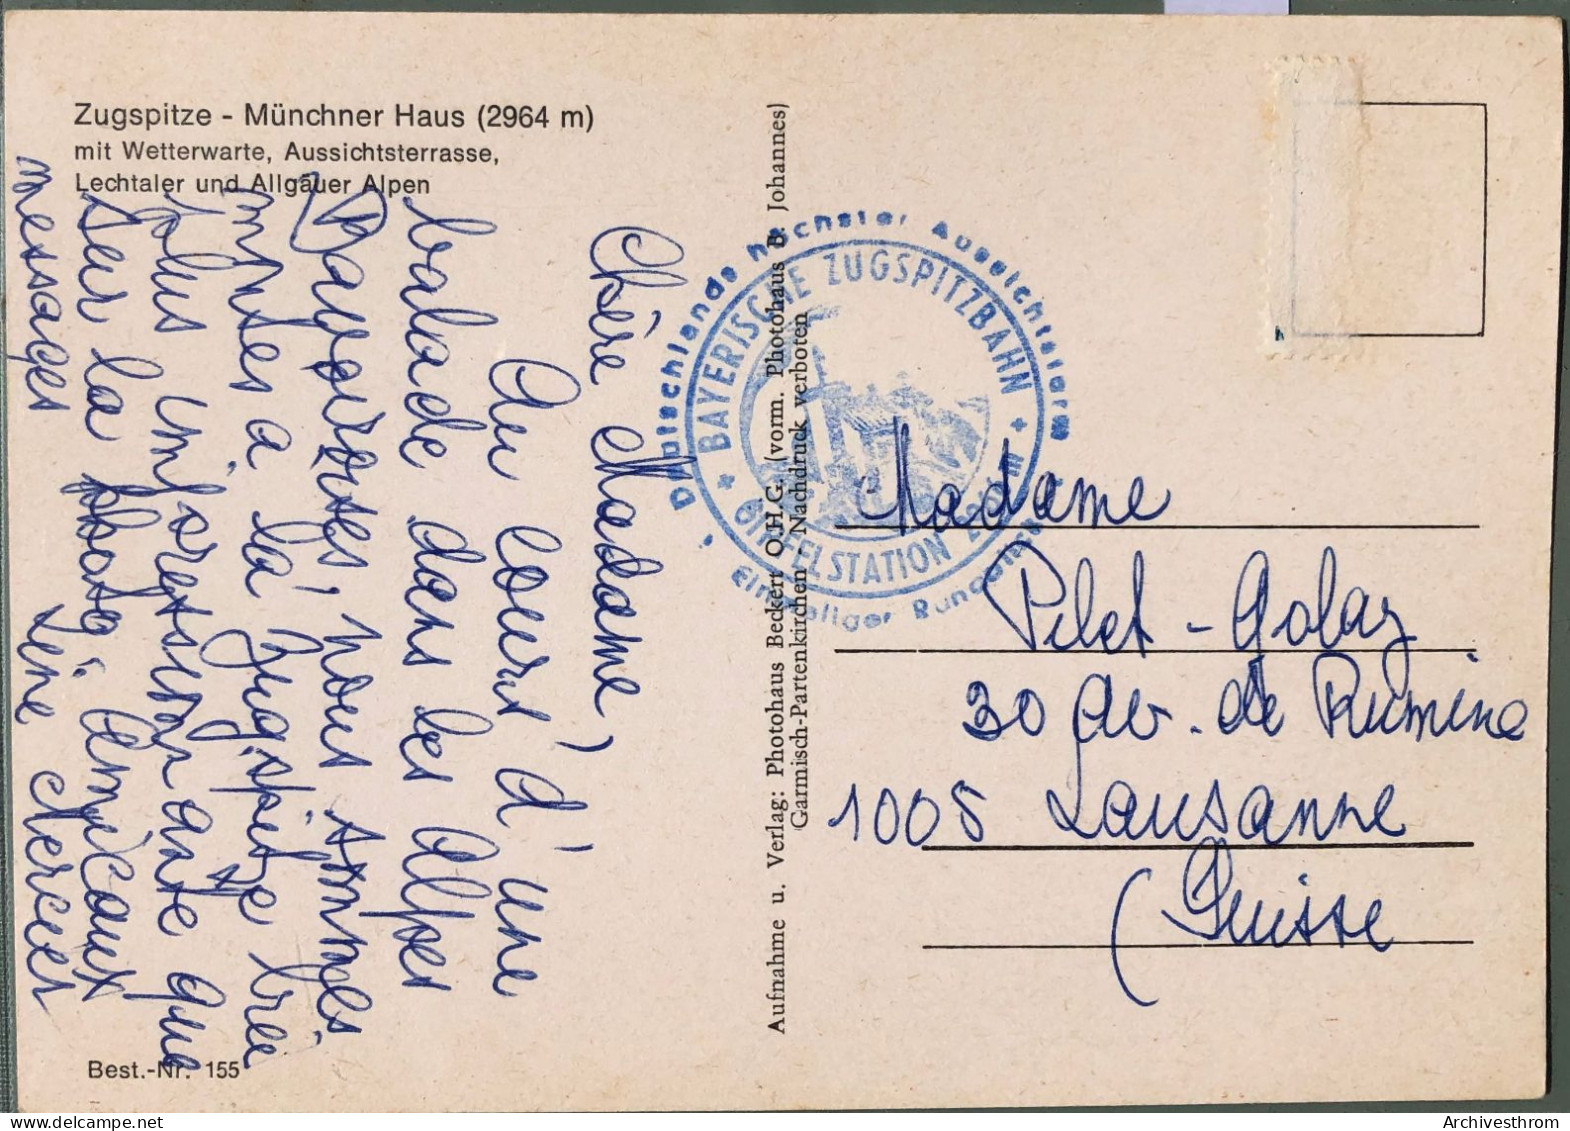 Zugspitze - Münchner Haus (2964 m)
mit Wetterwarte, Aussichtsterrasse,
Lechtaler und Allgäuer Alpen
Chère Madame,
Au cours d'une
balade dans les Alpes
Bavaroises, nous sommes
montés à la Zugspitze
plus impressionnante que
sur la photo! Amicaux
messages
Best.-Nr. 155
Aufnahme u. Verlag: Photohaus Beckert O.H.G. (vorm. Photohaus B. Johannes)
Garmisch-Partenkirchen - Nachdruck verboten
Deutschlands höchster Aussichtsturm
BAYERISCHE ZUGSPITZBAHN
GIPFELSTATION
Einmaliger Rundblick
Madame
Pilet-Golaz
30 av. de Rumine
1005 Lausanne
(Suisse
Archivesthrom